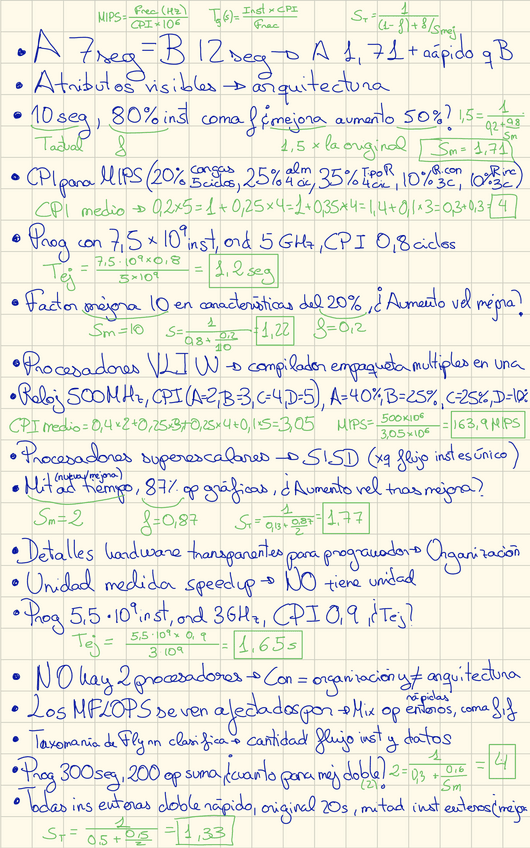 MIPS = Frec (Hz) / CPI × 10⁶   T_j(s) = Inst × CPI / Frec   S_T = 1 / (1-f) + f/Smej
• A 7seg = B 12seg → A 1,71 + rápido q B
• Atributos visibles → arquitectura
• 10seg, 80% inst coma f ¿mejora aumento 50%? 1,5 = 1 / 0,2 + 0,8/Sm
Tactual   f   1,5 × la original   Sm = 1,71
• CPI para MIPS (20% cargas 5ciclos, 25% alm 4ck, 35% TipoR 4ck, 10% R.con 3c, 10% R.inc 3c)
CPI medio → 0,2×5=1 + 0,25×4=1 + 0,35×4=1,4 + 0,1×3=0,3+0,3= 4
• Prog con 7,5 × 10⁹ inst, ord 5 GHz, CPI 0,8 ciclos
Tej = 7,5·10⁹×0,8 / 5×10⁹ = 1,2 seg
• Factor mejora 10 en características del 20%, ¿Aumento vel mejora?
Sm=10   S = 1 / 0,8 + 0,2/10 = 1,22   f=0,2
• Procesadores VLIW → compilador empaqueta multiples en una
• Reloj 500MHz, CPI (A=2, B=3, C=4, D=5), A=40%, B=25%, C=25%, D=10%
CPI medio = 0,4×2+0,25×3+0,25×4+0,1×5=3,05   MIPS = 500×10⁶ / 3,05×10⁶ = 163,9 MIPS
• Procesadores superescalares → SISD (xq flujo inst es único)
• Mitad tiempo (nueva/mejora), 87% op gráficas, ¿Aumento vel tras mejora?
Sm=2   f=0,87   S_T = 1 / 0,13 + 0,87/2 = 1,77
• Detalles hardware transparentes para programador → Organización
• Unidad medida speedup → NO tiene unidad
• Prog 5,5 · 10⁹ inst, ord 3GHz, CPI 0,9, ¿Tej?
Tej = 5,5·10⁹ × 0,9 / 3·10⁹ = 1,65s
• NO hay 2 procesadores → Con = organización y ≠ arquitectura
• Los MFLOPS se ven afectados por → Mix op rápidas enteros, coma f, if
• Taxomanía de Flynn clasifica → cantidad flujo inst y datos
• Prog 300seg, 200 op suma, ¿cuanto para mej doble? (2) 2 = 1 / 0,3 + 0,6/Sm = 4
• Todas ins enteras doble rápido, original 20s, mitad inst enteros (mejora
S_T = 1 / 0,5 + 0,5/2 = 1,33